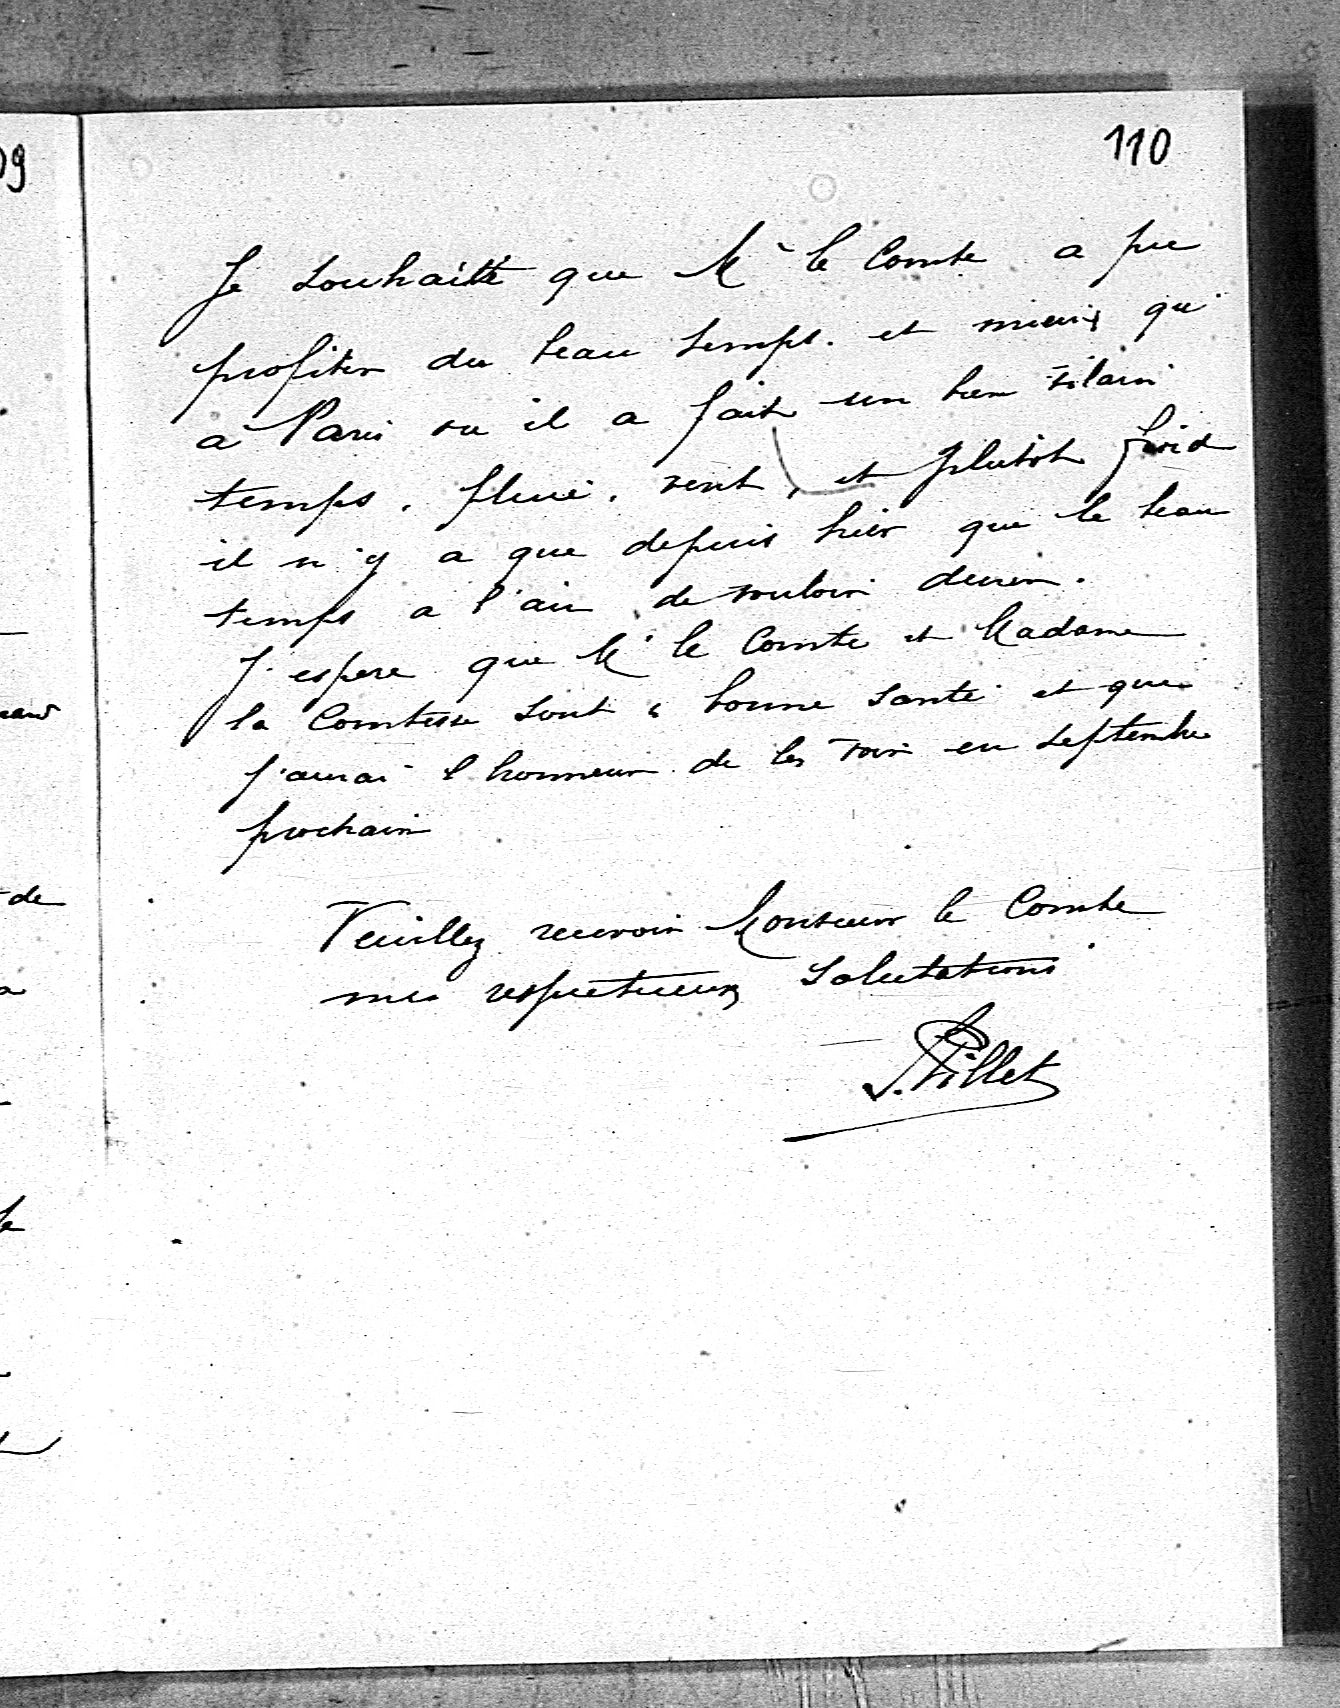 110
Je souhaite que Mr le Comte a pu
profiter du beau temps. et mieux qu'
à Paris ou il a fait un bien vilain
temps. pluie. vent, et plutot froid
il n'y a que depuis hier que le beau
temps a l'air de vouloir durer.
J'espere que Mr le Comte et Madame
la Comtesse sont bonne santé et que
j'aurai l'honneur de les voir en septembre
prochain
Veuillez recevoir Monsieur le Comte
mes respectueux salutations
09
de